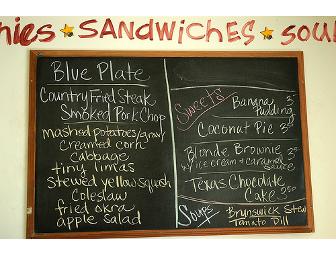 hies ★ SANDWICHES ★ SOU
Blue Plate
Country Fried Steak
Smoked Pork Chop
mashed potatoes/gravy
creamed corn
cabbage
tiny limas
stewed yellow squash
coleslaw
fried okra
apple salad
Sweets
Banana
Pudding 3
Coconut Pie 3
Blonde Brownie 3
w/ ice cream + caramel
sauce
Texas Chocolate
Cake 3
Soups
Brunswick Stew
Tomato Dill